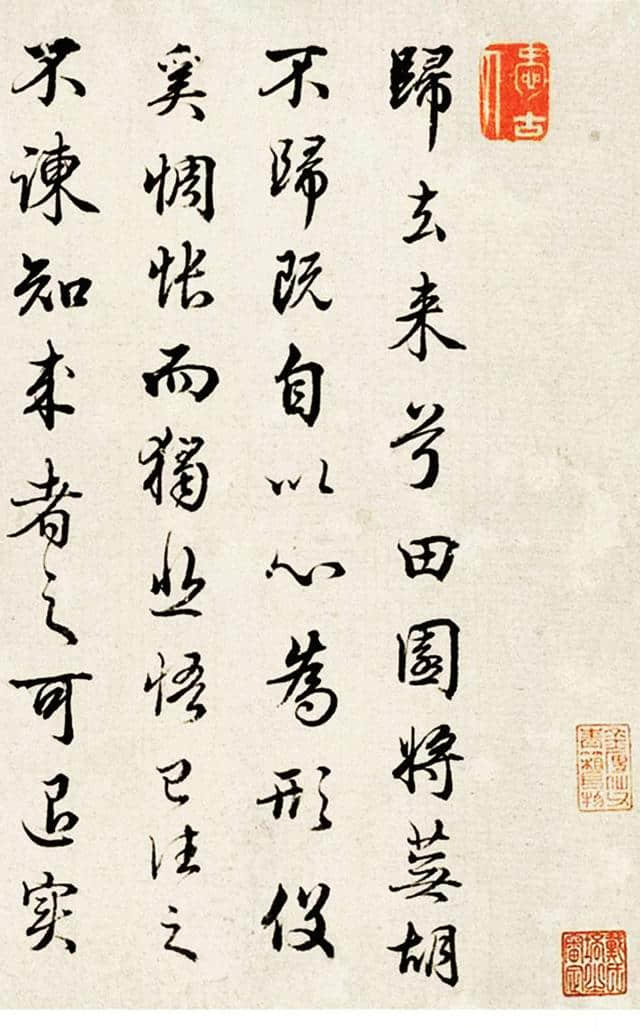 歸去来兮田園將蕪胡
不歸既自以心為形役
奚惆悵而獨悲悟已往之
不諫知来者之可追實